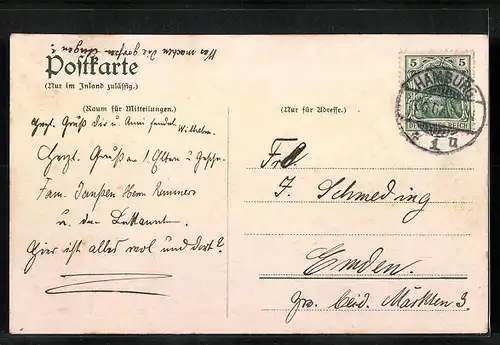 Was machen die großen Augen?
Postkarte
(Nur im Inland zulässig.)
(Raum für Mitteilungen.)
(Nur für Adresse.)
5 5
HAMBURG
1 u
DEUTSCHES REICH
Herzl. Gruß dir u. Anni sendet
Wilhelm.
Herzl. Gruß an l. Eltern u. Geschw.
Fam. Janßen Herrn Remmers
u. den Bekannt.
Hier ist alles wol und dort?
Frl.
J. Schmeding
Emden.
Gr. Märkten 3.